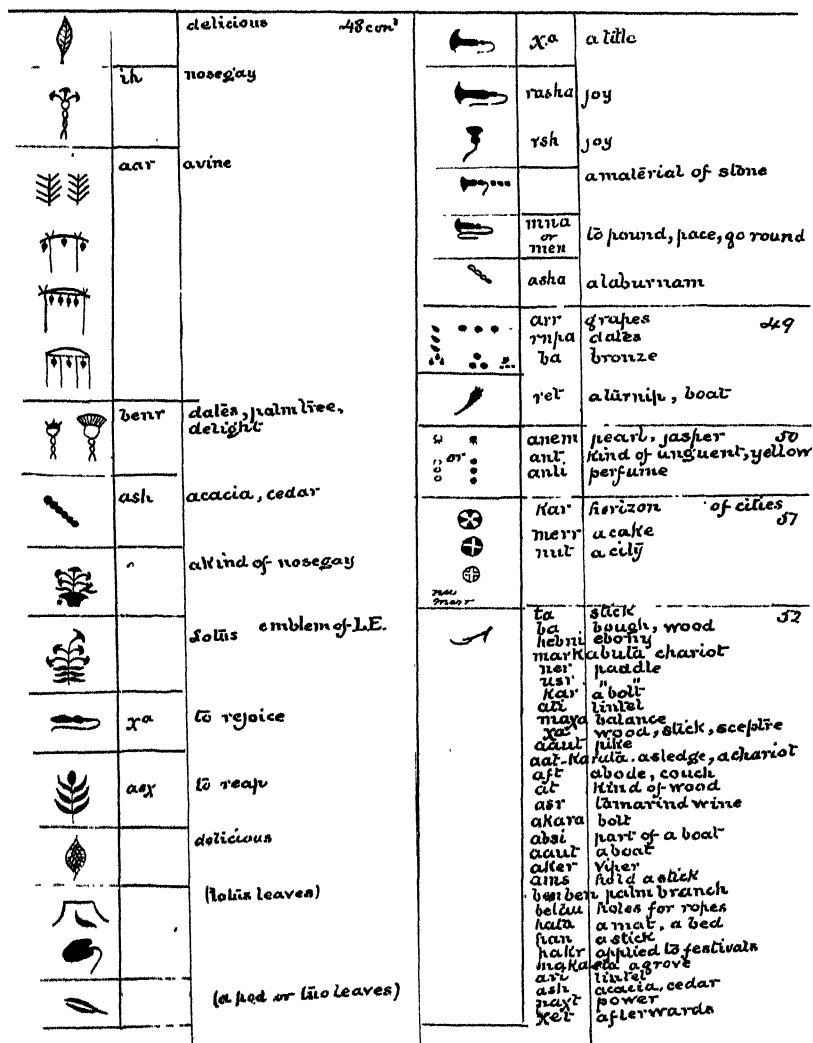 delicious 48 conᵈ
ih nosegay
aar a vine
benr dates, palm tree,
delight
ash acacia, cedar
a kind of nosegay
Lotus emblem of L.E.
χa to rejoice
asχ to reap
delicious
(lotus leaves)
(a pod or two leaves)
χa a title
rasha joy
rsh joy
a material of stone
mna
or
men to pound, pace, go round
asha a laburnam
arr grapes 49
rnpa dates
ba bronze
ret a turnip, boat
anem pearl, jasper 50
or ant kind of unguent, yellow
anti perfume
Kar horizon of cities
51
merr a cake
nut a city
nu
merr
ta stick 52
ba bough, wood
hebni ebony
markabuta chariot
ner paddle
usr " "
Kar a bolt
ati lintel
maχa balance
χa wood, stick, sceptre
aaut pike
aat-Karuta. a sledge, a chariot
aft abode, couch
at Kind of wood
asr tamarind wine
akara bolt
absi part of a boat
aaut a boat
aker viper
ams hold a stick
benben palm branch
holes for ropes
hata a mat, a bed
han a stick
hakr applied to festivals
a grove
ari lintel
ash acacia, cedar
naχt power
χet afterwards